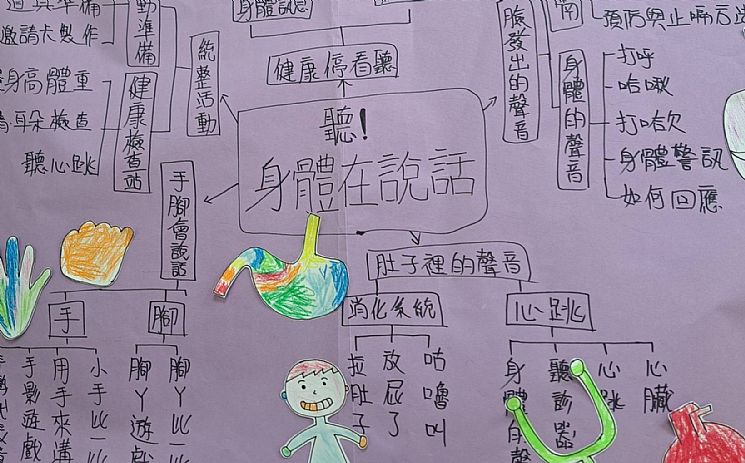 邀請卡製作
動準備
統整活動
健康檢查站
身高體重
耳朵檢查
聽心跳
身體訊息
健康停看聽
聽!
身體在說話
臉發出的聲音
身體的聲音
打呼
哈啾
打哈欠
身體警訊
如何回應
手腳會說話
手
腳
手影遊戲
用手來講
小手比一比
腳丫遊戲
腳丫比一比
肚子裡的聲音
消化系統
心跳
拉肚子
放屁了
咕嚕叫
聽診器
心跳
心臟